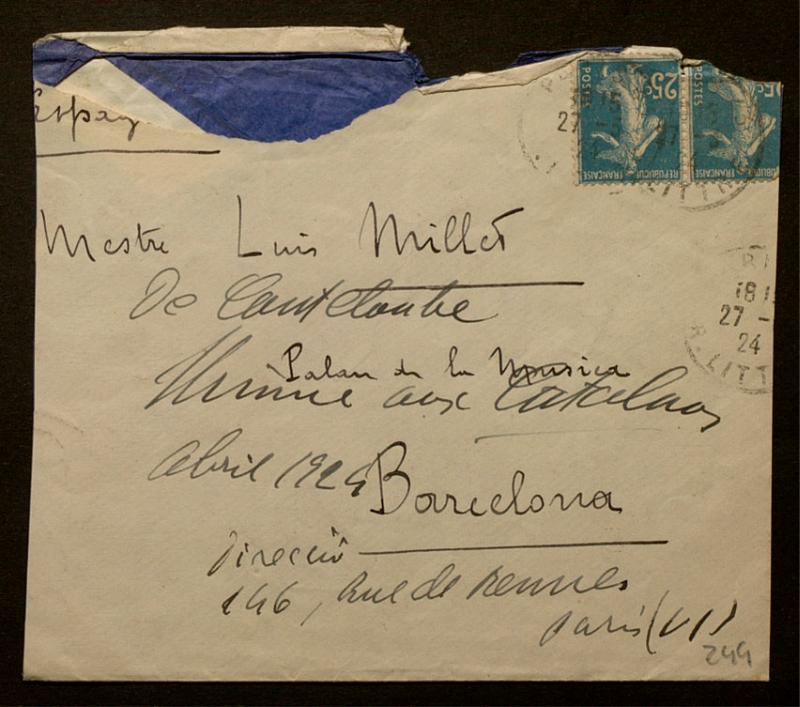 Espag
25c
POSTES
REPUBLIQUE FRANÇAISE
5c
POSTES
FRANÇAISE
27
LITTR
Mestre Luis Millet
De Canteloube
18
27 -
24
R. LITT
Palau de la Musica
Himne aux Catalans
Abril 1924
Barcelona
Direcció
146, Rue de Rennes
Paris (VI)
244